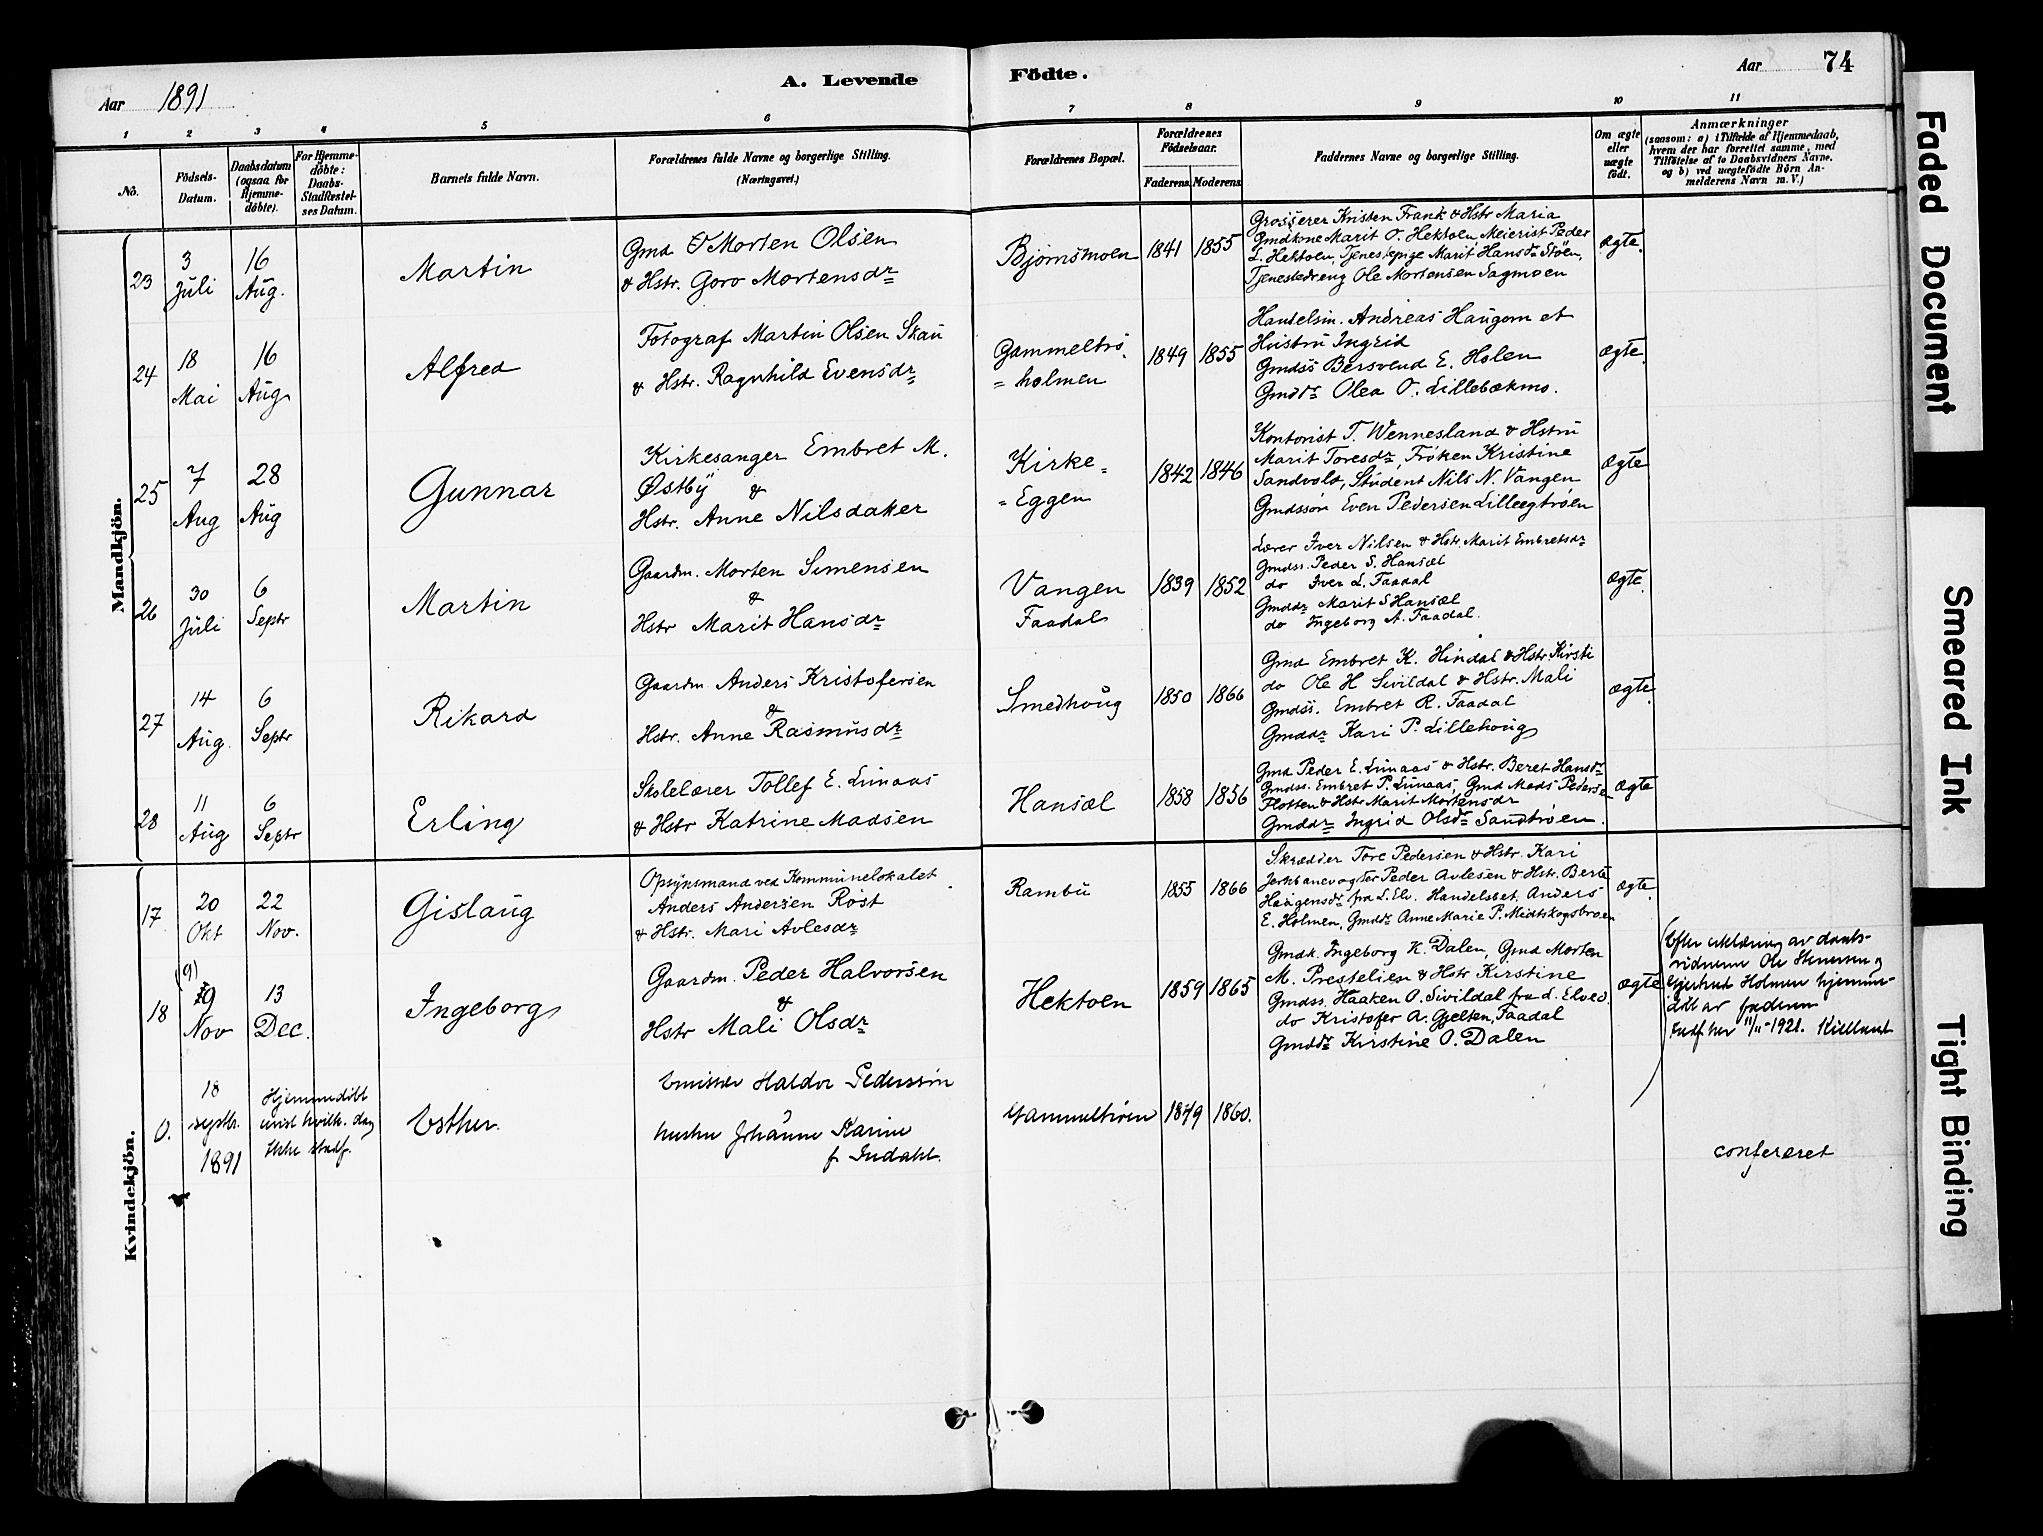 Aar 1891
A. Levende Födte.
Aar 74
1 2 3 4 5 6 7 8 9 10 11
No.
Födsels-
Datum.
Daabsdatum
(ogsaa for
Hjemme-
döbte).
For Hjemme-
döbte:
Daabs-
Stadfæstel-
ses Datum.
Barnets fulde Navn.
Forældrenes fulde Navne og borgerlige Stilling.
(Næringsvei.)
Forældrenes Bopæl.
Forældrenes
Födselsaar.
Faderens. Moderens.
Faddernes Navne og borgerlige Stilling.
Om ægte
eller
uægte
födt.
Anmærkninger
(saasom: a) i Tilfælde af Hjemmedaab,
hvem der har forrettet samme, med
Tilföielse af to Daabsvidners Navne.
og b) ved uægtefödte Börn An-
melderens Navn m.V.)
Mandkjön.
23
3
Juli
16
Aug.
Martin
Gmd O Morten Olsen
& Hstr. Goro Mortensdr
Bjørnsmoen
1841
1855
Grosserer Kristen Frank & Hstr Maria
Gmdkone Marit O. Hektoen, Meierist Peder
L. Hektoen, Tjenestepige Marit Hansdr Støen,
Tjenestedreng Ole Mortensen Sagmoen
ægte.
24
18
Mai
16
Aug
Alfred
Fotograf Martin Olsen Skau
& Hstr. Ragnhild Evensdr
Gammeltrø.
= holmen
1849
1855
Handelsm. Andreas Haugom et
Hustru Ingrid
Gmdss Bersvend E. Holen
Gmddr Olea O. Lillebækmo.
ægte.
25
7
Aug
28
Aug
Gunnar
Kirkesanger Embret M.
Østby &
Hstr. Anne Nilsdaker
Kirke =
= Eggen
1842
1846
Kontorist T. Wennesland & Hstru
Marit Toresdr, Frøken Kristine
Sandvold, Student Nils N. Vangen
Gmdssøn Even Pedersen Lilleegtrøen
Ægte
26
30
Juli
6
Septr
Martin
Gaardm. Morten Simensen
&
Hstr Marit Hansdr
Vangen
Faadal
1839
1852
Lærer Iver Nilsen & Hstr. Marit Embretsdr
Gmdss. Peder S. Hansæl
do Iver L. Faadal
Gmddr Marit S Hansæl
do Ingeborg A. Faadal.
Ægte.
27
14
Aug.
6
Septr
Rikard
Gaardm Anders Kristofersen
&
Hstr. Anne Rasmusdr
Smedhoug
1850
1866
Gmd Embret K. Hindal & Hstr Kirsti
do Ole H Sivildal & Hstr. Mali
Gmdss. Embret R. Faadal
Gmddr Kari P. Lillehoug
ægte.
28
11
Aug
6
Septr
Erling
Skolelærer Tollef E. Lunaas
& Hstr Katrine Madsen
Hansæl
1858
1856
Gmd Peder E. Lunaas & Hstr. Beret Hansdr
Gmdss. Embret P. Lunaas, Gmd Mads Pedersen
Flotten & Hstr Marit Mortensdr
Gmddr Ingrid Olsdr Sandtrøen.
Ægte
Kvindekjön.
17
20
Okt
22
Nov.
Gislaug
Opsynsmand ved Kommunelokalet
Anders Andersen Røst
& Hstr. Mari Avlesdr
Rambu
1855
1866
Skrædder Tore Pedersen & Hstr. Kari
Jernbanevogter Peder Avlesen & Hstr. Berte
Haagensdr fra L. Elv. Handelsbet. Anders
E. Holmen, Gmddr Anne Marie P. Midtskogsbroen
ægte.
18
(9)
19
Nov
13
Dec.
Ingeborg
Gaardm. Peder Halvorsen
&
Hstr Mali Olsdr
Hektoen
1859
1865
Gmdk. Ingeborg K. Dalen, Gmd Morten
M. Prestelien & Hstr Kirstine
Gmdss. Haaken O. Sivildal fra L. Elved.
do Kristofer A. Gjelten, Faadal
Gmddr Kirstine O. Dalen
ægte
Efter erklæring av daabs-
vidnerne Ole Stenersen og
Holmen hjemme-
døbt av faderen
11/11-1921.
0.
18
septbr.
1891
Hjemmedøbt
uvist hvilk. dag
Ikke stadf.
Esther.
Emissær Haldor Pederssøn
hustru Johanne Karine
f. Indahl.
Gammeltrøen
1849
1860.
confereret
Faded Document
Smeared Ink
Tight Binding